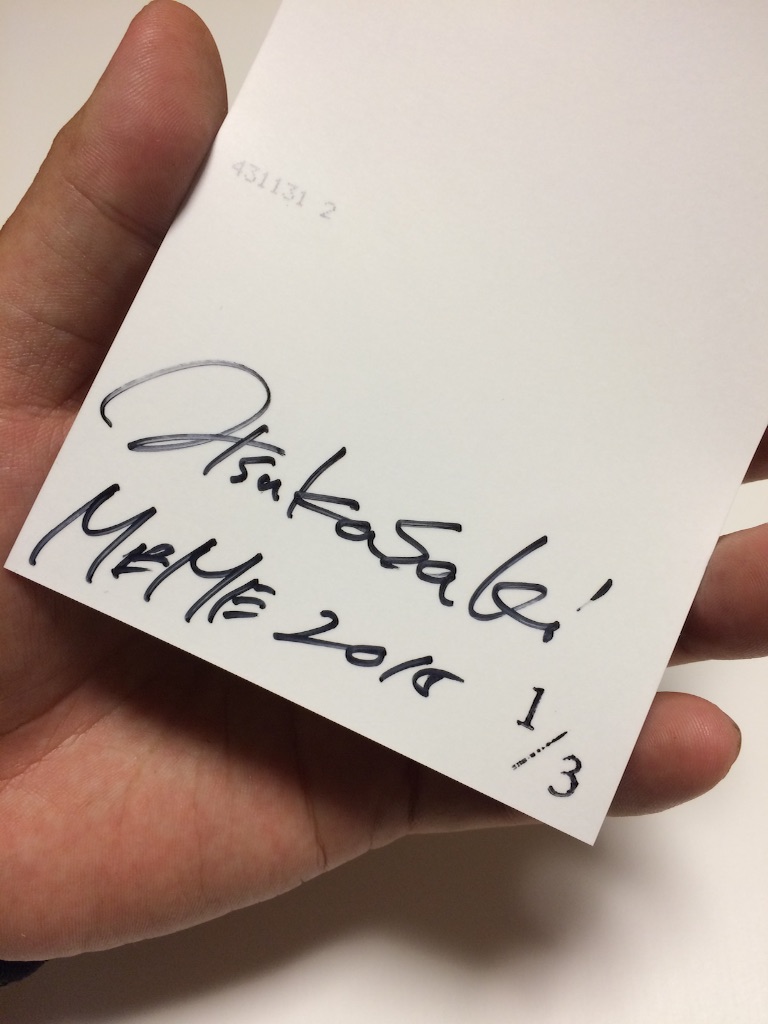 431131 2
Itsukasaki
MEME 2015
1/3